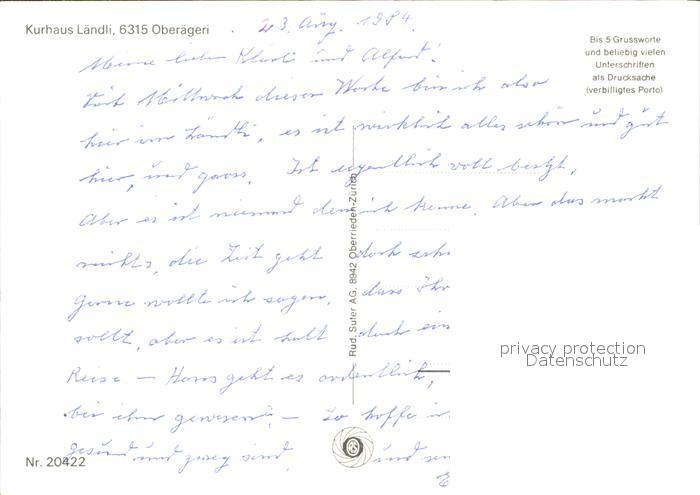 Kurhaus Ländli, 6315 Oberägeri
23. Aug. 1984.
Bis 5 Grussworte
und beliebig vielen
Unterschriften
als Drucksache
(verbilligtes Porto)
Meine lieben Klärli und Alfred!
Seit Mittwoch dieser Woche bin ich also
hier im Ländli, es ist wirklich alles schön und gut
hier, und gross. Ist eigentlich voll besetzt,
Aber es ist niemand den ich kenne. Aber das macht
nichts, die Zeit geht doch
Gerne wollte ich sagen, dass Ihr
sollt, aber es ist halt doch ein
Reise – Hans geht es ordentlich,
bei ihm gewesen. – So hoffe
gesund und zweg sind. und
Rud. Suter AG, 8942 Oberrieden-Zürich
privacy protection
Datenschutz
Nr. 20422